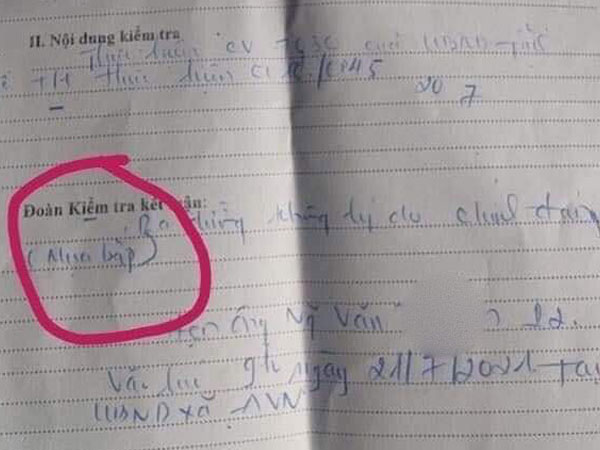 II. Nội dung kiểm tra
Thực hiện CV 7630 của UBND tỉnh
TH thực hiện CT 16/
Đoàn Kiểm tra kết luận:
Ra đường không lý do chính đáng
(Mua bắp)
hẹn ông Ng Văn
Vào lúc 9h ngày 21/7/2021 tại
UBND xã AVN